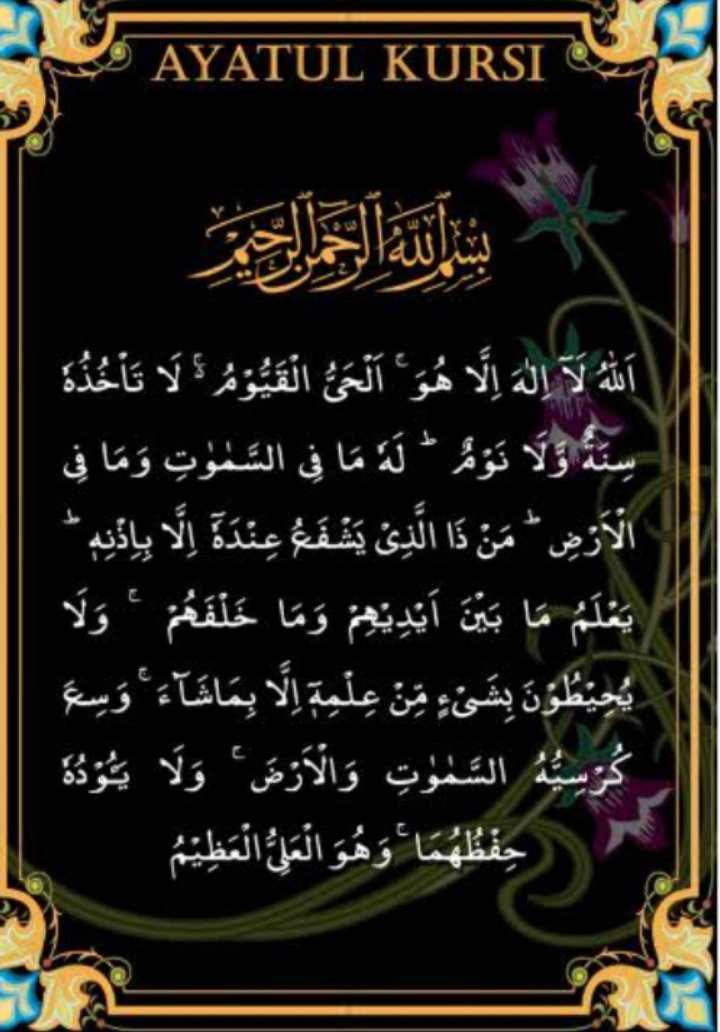 AYATUL KURSI
بِسْمِ اللَّهِ الرَّحْمَنِ الرَّحِيمِ
اَللّٰهُ لَآ اِلٰهَ اِلَّا هُوَ ۚ اَلْحَىُّ الْقَيُّوْمُ ۬ۚ لَا تَاْخُذُهٗ
سِنَةٌ وَّلَا نَوْمٌ ؕ لَهٗ مَا فِى السَّمٰوٰتِ وَمَا فِى
الْاَرْضِ ؕ مَنْ ذَا الَّذِىْ يَشْفَعُ عِنْدَهٗٓ اِلَّا بِاِذْنِهٖ ؕ
يَعْلَمُ مَا بَيْنَ اَيْدِيْهِمْ وَمَا خَلْفَهُمْ ۚ وَلَا
يُحِيْطُوْنَ بِشَىْءٍ مِّنْ عِلْمِهٖٓ اِلَّا بِمَاشَآءَ ۚ وَسِعَ
كُرْسِيُّهُ السَّمٰوٰتِ وَالْاَرْضَ ۚ وَلَا يَـــُٔوْدُهٗ
حِفْظُهُمَا ۚ وَهُوَ الْعَلِىُّ الْعَظِيْمُ